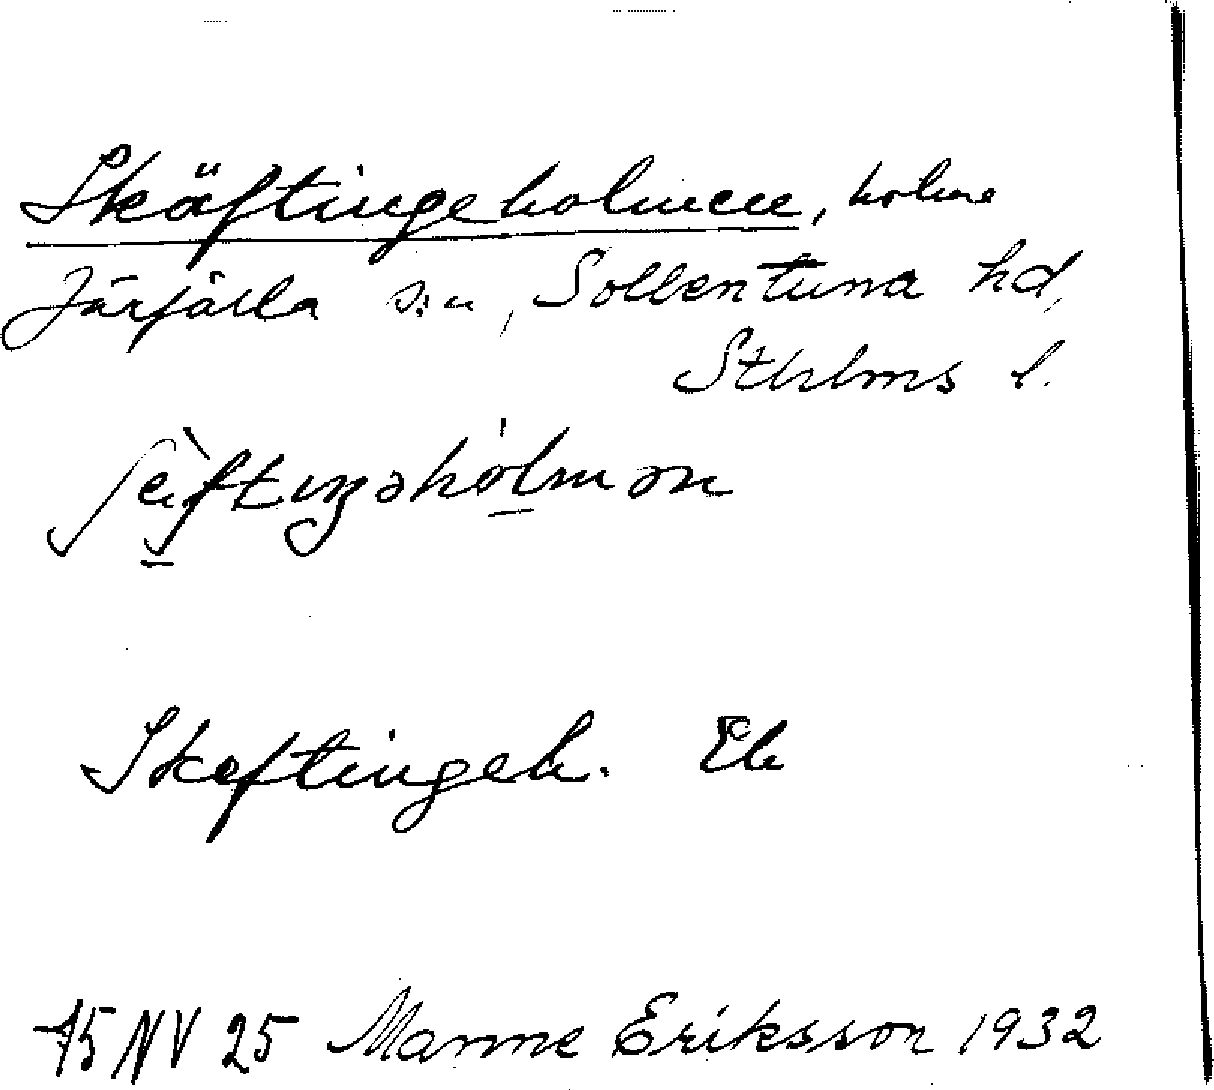 Skäftingeholmen, holme
Järfälla sn, Sollentuna hd,
Sthlms l.
ʃèftıŋəhólmən
Skeftingeh. Ek
75 NV 25 Manne Eriksson 1932